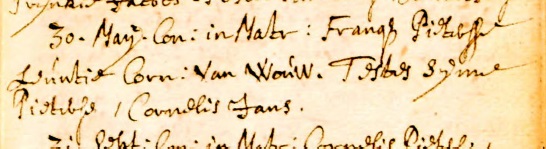 30. May. Con: in Matr: Franqs Pieterse
Leuntie Corn: van Wouw. Testes Symne
Pieterse, Cornelis Jans.
Sept: Con: in Matr: Cornelis Pieterse